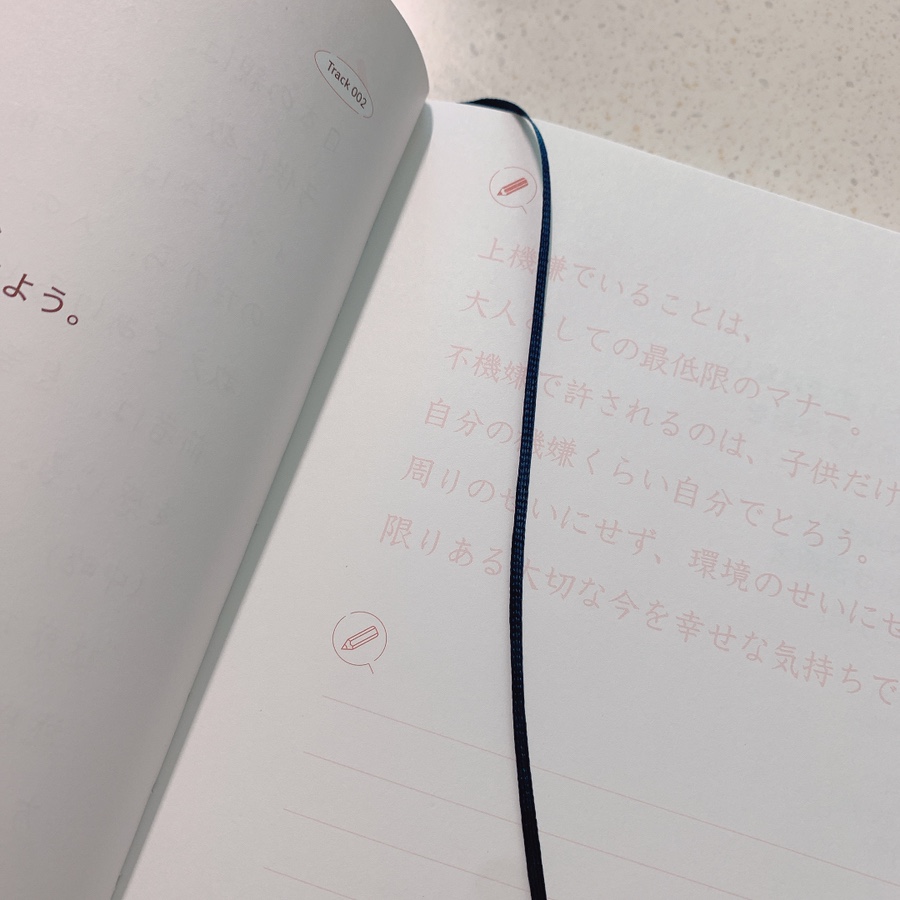 Track 002
よう。
上機嫌でいることは、
大人としての最低限のマナー。
不機嫌で許されるのは、子供だけ
自分の機嫌くらい自分でとろう。
周りのせいにせず、環境のせいにせ
限りある大切な今を幸せな気持ちで